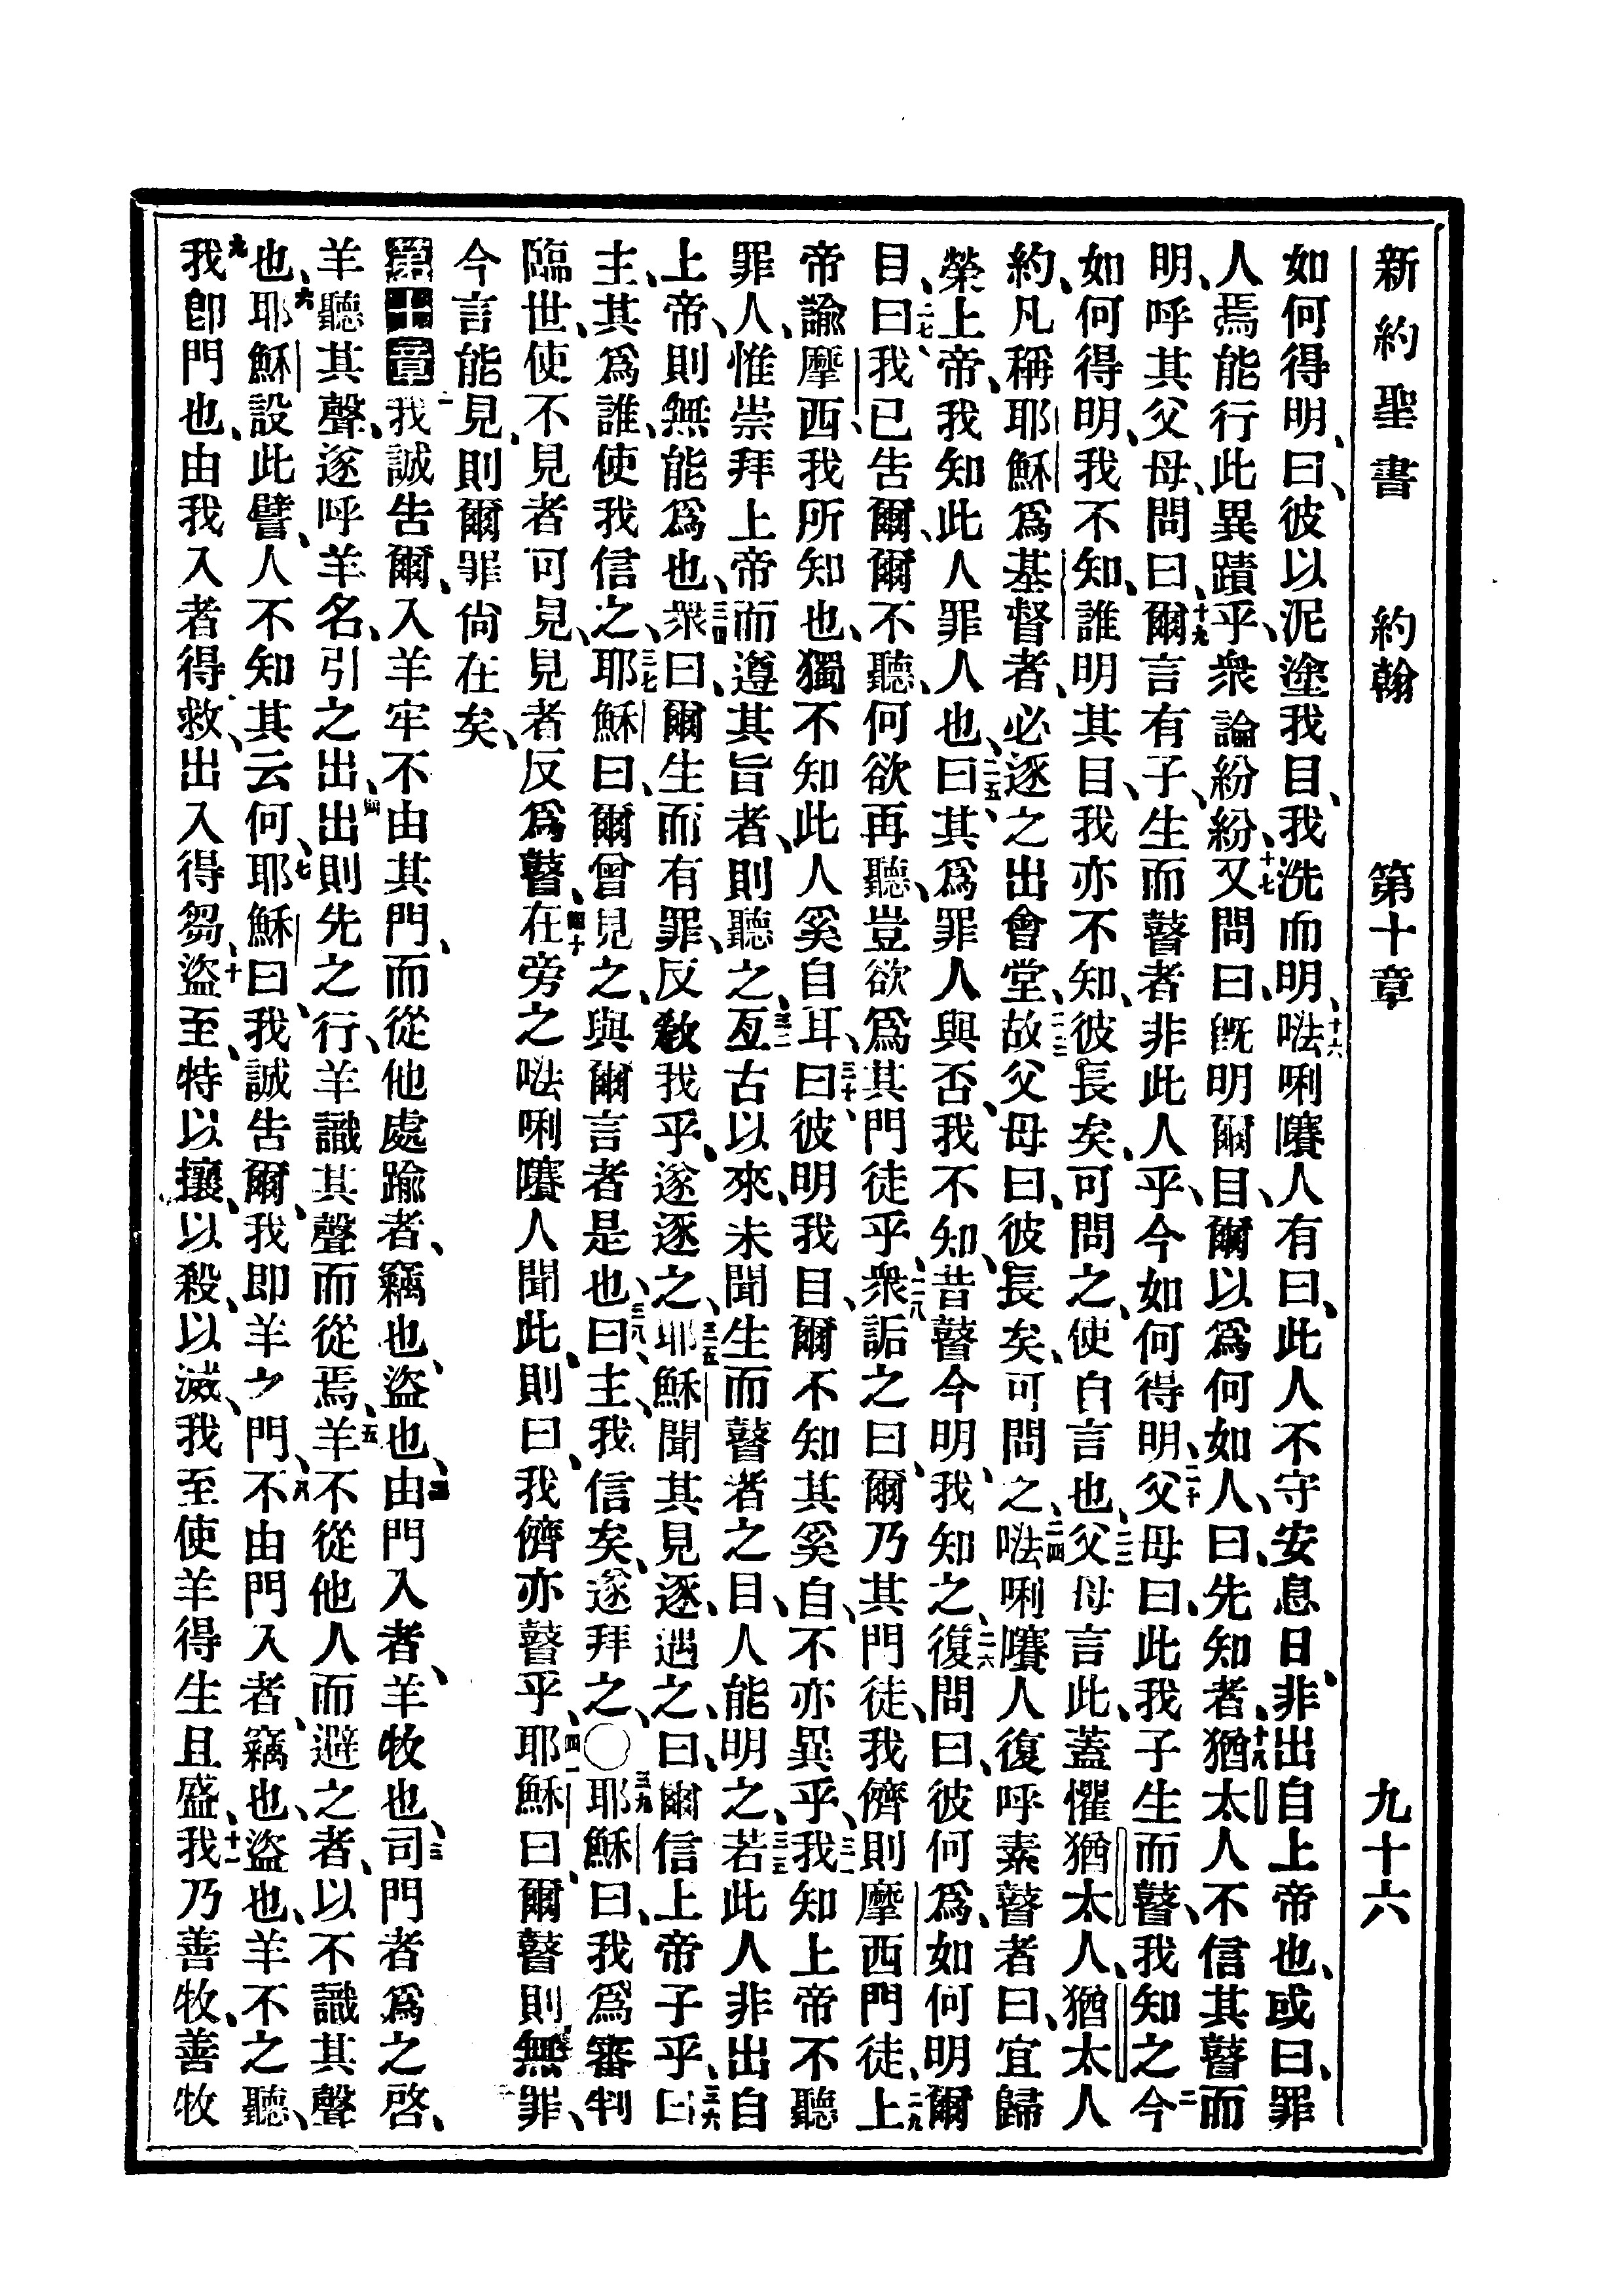 新約聖書 約翰 第十章 九十六
如何得明、曰、彼以泥塗我目、我洗而明、十六㗳唎㘔人有曰、此人不守安息日、非出自上帝也、或曰、罪
人焉能行此異蹟乎、衆論紛紛、十七又問曰、旣明爾目、爾以爲何如人、曰、先知者、十八猶太人不信其瞽而
明、呼其父母、問曰、十九爾言有子、生而瞽者、非此人乎、今如何得明、二十父母曰、此我子生而瞽、我知之、二一今
如何得明、我不知、誰明其目、我亦不知、彼長矣、可問之、使自言也、二二父母言此、蓋懼猶太人、猶太人
約、凡稱耶穌爲基督者、必逐之出會堂、二三故父母曰、彼長矣、可問之、二四㗳唎㘔人復呼素瞽者曰、宜歸
榮上帝、我知此人罪人也、二五曰、其爲罪人與否、我不知、昔瞽今明、我知之、二六復問曰、彼何爲、如何明爾
目、二七曰、我已告爾、爾不聽、何欲再聽、豈欲爲其門徒乎、二八衆詬之曰、爾乃其門徒、我儕則摩西門徒、二九上
帝諭摩西、我所知也、獨不知此人奚自耳、三十曰、彼明我目、爾不知其奚自、不亦異乎、三一我知上帝不聽
罪人、惟崇拜上帝而遵其旨者、則聽之、三二亙古以來、未聞生而瞽者之目、人能明之、三三若此人非出自
上帝、則無能爲也、三四衆曰、爾生而有罪、反敎我乎、遂逐之、三五耶穌聞其見逐、遇之、曰、爾信上帝子乎、三六曰
主、其爲誰、使我信之、三七耶穌曰、爾曾見之、與爾言者是也、三八曰、主、我信矣、遂拜之、〇三九耶穌曰、我爲審判
臨世、使不見者可見、見者反爲瞽、四十在旁之㗳唎㘔人聞此、則曰、我儕亦瞽乎、四一耶穌曰、爾瞽則無罪、
今言能見、則爾罪尙在矣、
第十章一我誠告爾、入羊牢不由其門、而從他處踰者、竊也、盜也、二由門入者、羊牧也、三司門者爲之啓、
羊聽其聲、遂呼羊名、引之出、四出則先之行、羊識其聲而從焉、五羊不從他人而避之者、以不識其聲
也、六耶穌設此譬、人不知其云何、七耶穌曰、我誠告爾、我即羊之門、八不由門入者、竊也、盜也、羊不之聽、
九我卽門也、由我入者得救、出入得芻、十盜至、特以攘、以殺、以滅、我至使羊得生且盛、十一我乃善牧、善牧